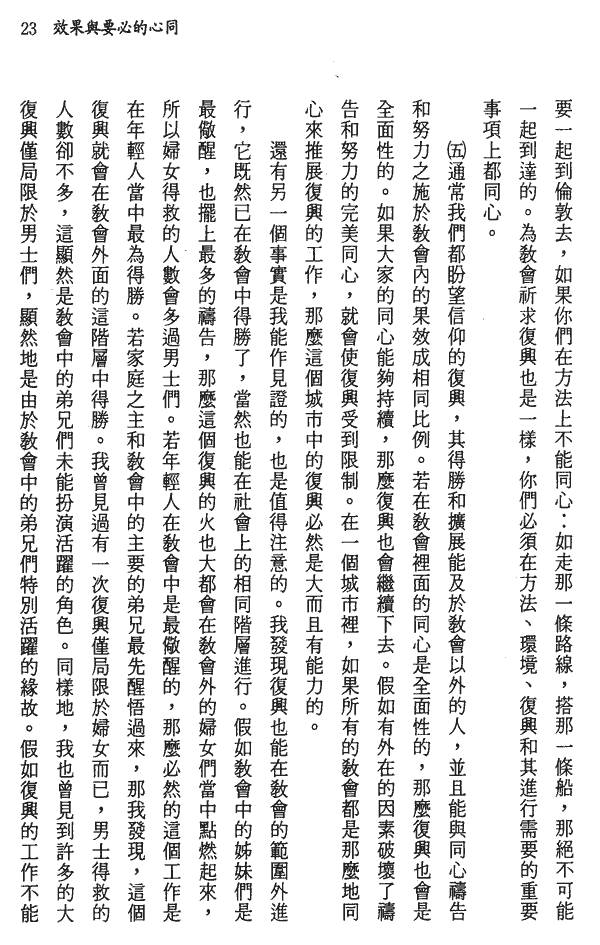 23 效果與要必的心同
要一起到倫敦去，如果你們在方法上不能同心：如走那一條路線，搭那一條船，那絕不可能
一起到達的。為教會祈求復興也是一樣，你們必須在方法、環境、復興和其進行需要的重要
事項上都同心。
㈤通常我們都盼望信仰的復興，其得勝和擴展能及於教會以外的人，並且能與同心禱告
和努力之施於教會內的果效成相同比例。若在教會裡面的同心是全面性的，那麼復興也會是
全面性的。如果大家的同心能夠持續，那麼復興也會繼續下去。假如有外在的因素破壞了禱
告和努力的完美同心，就會使復興受到限制。在一個城市裡，如果所有的教會都是那麼地同
心來推展復興的工作，那麼這個城市中的復興必然是大而且有能力的。
還有另一個事實是我能作見證的，也是值得注意的。我發現復興也能在教會的範圍外進
行，它既然已在教會中得勝了，當然也能在社會上的相同階層進行。假如教會中的姊妹們是
最儆醒，也擺上最多的禱告，那麼這個復興的火也大都會在教會外的婦女們當中點燃起來，
所以婦女得救的人數會多過男士們。若年輕人在教會中是最儆醒的，那麼必然的這個工作是
在年輕人當中最為得勝。若家庭之主和教會中的主要的弟兄最先醒悟過來，那我發現，這個
復興就會在教會外面的這階層中得勝。我曾見過有一次復興僅局限於婦女而已，男士得救的
人數卻不多，這顯然是教會中的弟兄們未能扮演活躍的角色。同樣地，我也曾見到許多的大
復興僅局限於男士們，顯然地是由於教會中的弟兄們特別活躍的緣故。假如復興的工作不能